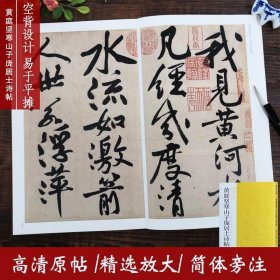 空背设计 易于平摊
黄庭坚寒山子庞居士诗帖
我見黄河水
凡經幾度清
水流如激箭
人世若浮萍
黄庭坚寒山子庞居士诗帖
高清原帖/精选放大/简体旁注